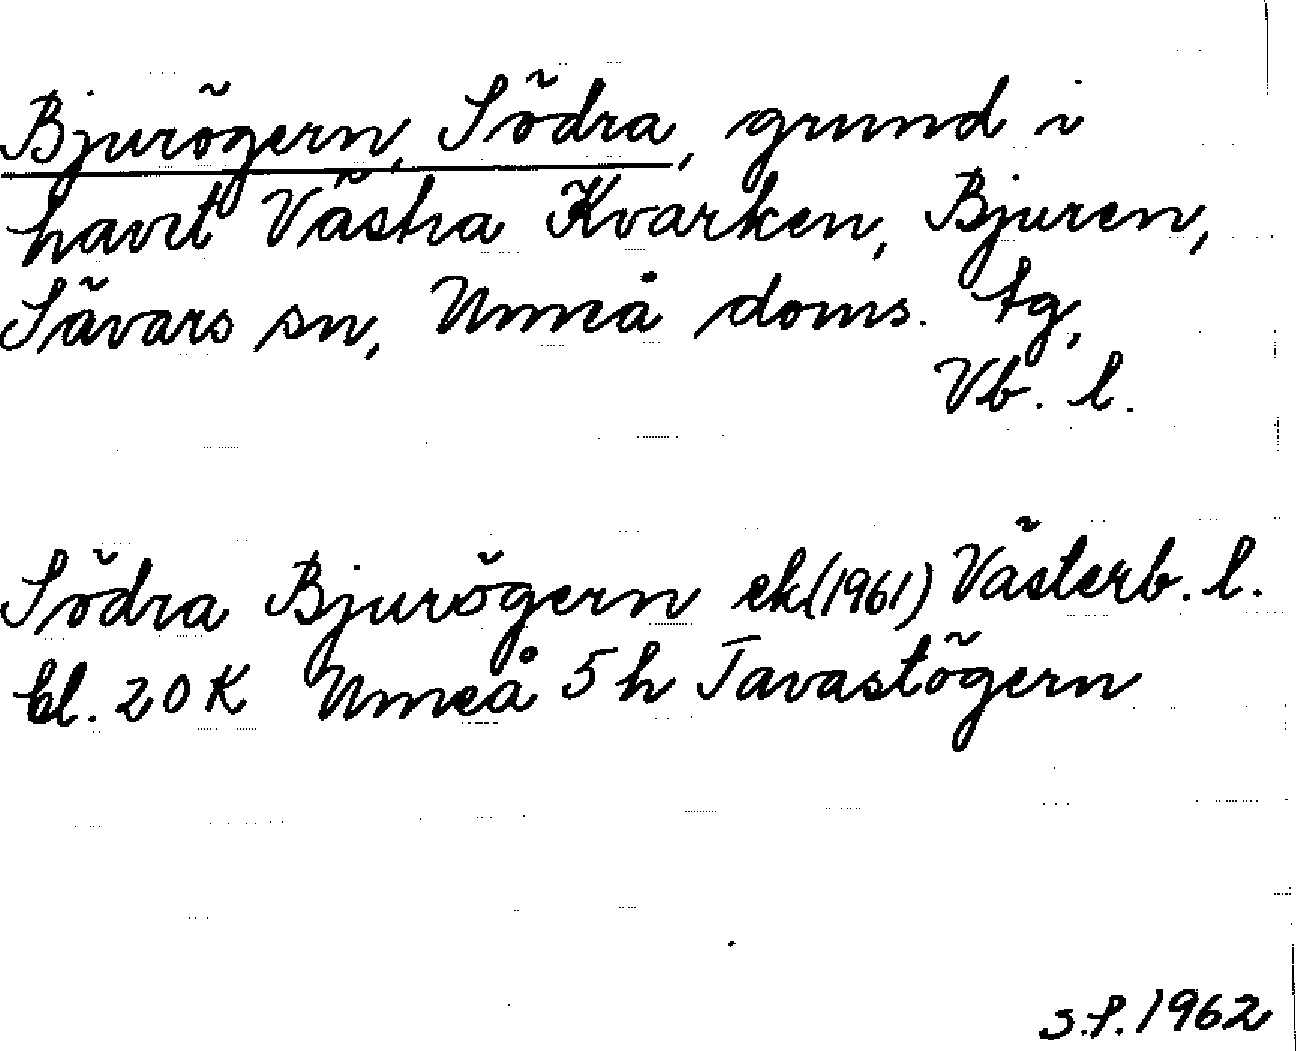 Bjurögern, Södra, grund i
havet Västra Kvarken, Bjuren,
Sävars sn, Umeå doms. tg,
Vb. l.
Södra Bjurögern ek(1961) Västerb. l.
bl. 20 K Umeå 5 h Tavastögern
S.f. 1962